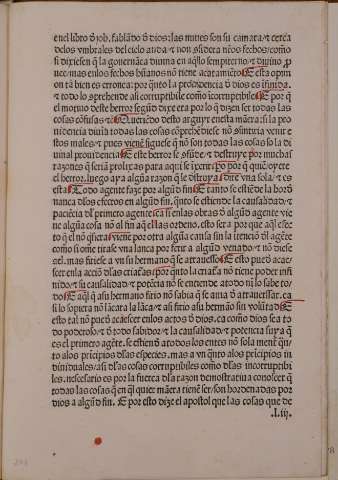 en el libro d̃ job. fablãdo d̃ dios: las nuues son su camara ⁊ cerca
delos vmbrales del cielo anda: ⁊ non cõsidera nr̃os fechos: como
si dixiesen q̃ la gouernãça diuina en aq̃llo sempiterno: ⁊ diuino ꝓ
uee: mas enlos fechos hũanos nõ tiene acatamiẽto. E esta opini
on tã bien es erronea: por quãto la prouidencia d̃ dios es
⁊ todo lo cõprehende asi corruptible como incorruptible. E por q̃
el motiuo deste herror segũd dixe era por lo q̃ dizen ser todas las
cosas cõfusas ⁊ El uerricio desto arguyr en esta mãera: si la pro
uidencia diuina todas las cosas cõprehẽdiese nõ cõsintiria venir e
stos males: ⁊ pues vienẽ siguese q̃ nõ son todas las cosas so la di
uinal prouidencia. E este herror se cõfũde: ⁊ destruye por muchas
razones q̃ seria prolixas para aqui se ĩxerir: po por q̃ quiẽ oyere
el herror. luego aya algũa razon q̃ le destruya: dire vna sola: ⁊ es
esta. Todo agente faze por algũd fin. E tanto se estiẽde la hordi
nanca dl̃os efectos en algũd fin. quãto se estiẽde la causalidad: ⁊
paciẽcia dl̃ primero agente: ca si en las obras d̃ algũd agente vie
ne algũa cosa nõ al fin aq̃ el las ordeno. esto sera por que aq̃l efec
to q̃ el nõ q̃siera viene por otra algũa causa sin la itenciõ dl̃ agẽte
como si õme tirase vna lança por ferir a algũd venado: ⁊ nõ diese
enel. mas firiese a vn su hermano q̃ se atrauesso. E esto puede acae
ser en la acciõ dl̃as criaturas: por quãto la criat̃a nõ tiene poder infi
nido: ⁊ su causalidad ⁊ potẽcia nõ se entiende a todo ni lo sabe to
do. E aq̃l q̃ a su hermano firio nõ sabia q̃ se auia d̃ atrauessar. ca
si lo supiera nõ lãcara la lãca: ⁊ asi firio a su hermão sin volũtad. E
esto tal nõ puede acaescer en los actos d̃ dios. ca como dios sea to
do poderoso: ⁊ d̃ todo sabidor: ⁊ la causalidad ⁊ potencia suya q̃
es el primero agẽte. se estiẽde a todos los entes nõ sola mente quã
to alos pricipios dl̃as especies. mas a vn quãto alos pricipios in
diuiduales: asi dl̃as cosas corruptibles como dl̃as incorruptibi
les. necesario es por la fuerca dl̃a razon demostratiua conoscer q̃
todas las cosas q̃ en q̃l quier mãera tienẽ ser: son hordenadas por
dios a algũd fin. E por esto dize el apostol que las cosas que de
.l. iij.